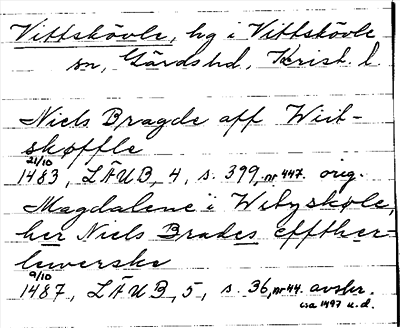 Vittskövle, hg i Vittskövle
sn, Gärds hd, Krist. l.
Niels Bragde aff Wiit-
skøffle
21/10
1483, LÄUB, 4, s. 399, nr 447. orig.
Magdalene i Webyskøle,
her Niels Brades effther-
leverske
9/10
1487, LÄUB, 5, s. 36, nr 44. avskr.
ca 1497 u.d.